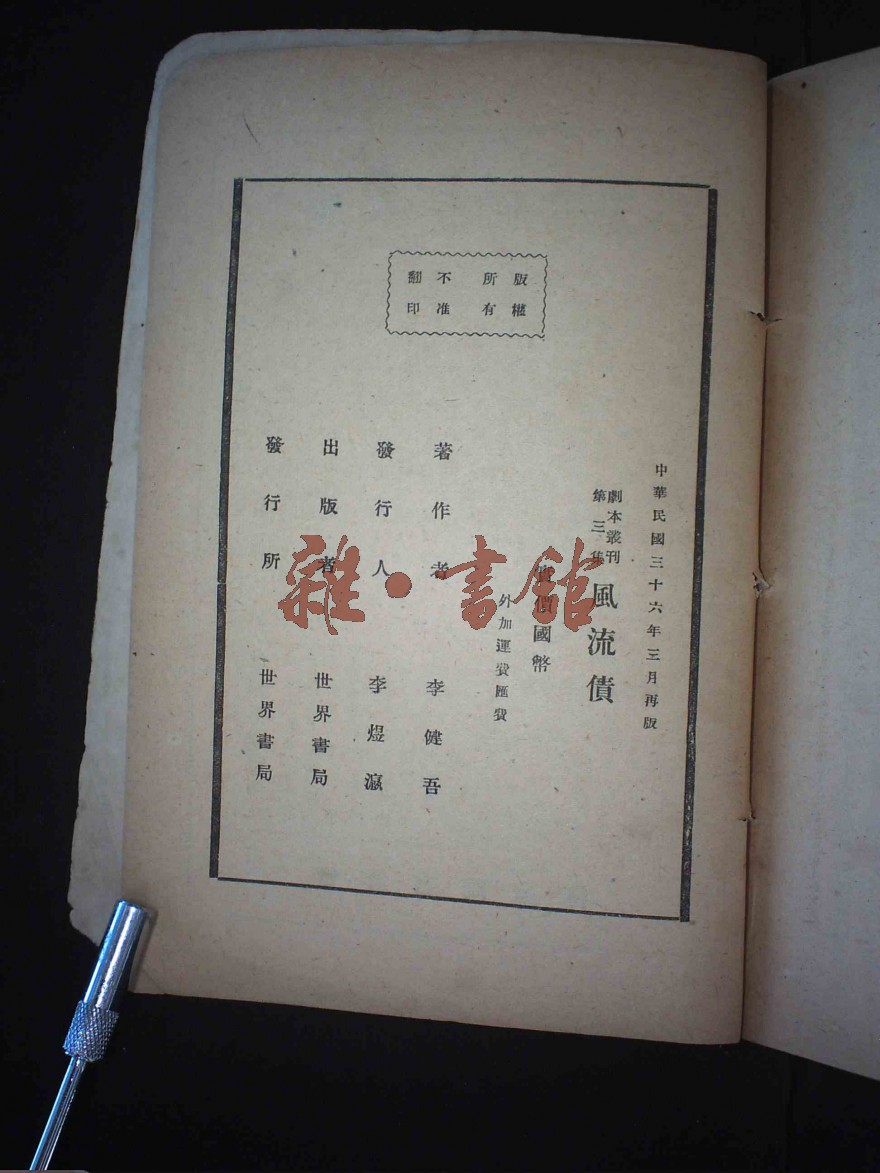 版權
所有
不准
翻印
中華民國三十六年三月再版
劇本叢刊
第三集
風流債
實價國幣
外加運費匯費
著作者 李健吾
發行人 李煜瀛
出版者 世界書局
發行所 世界書局
雜·書館